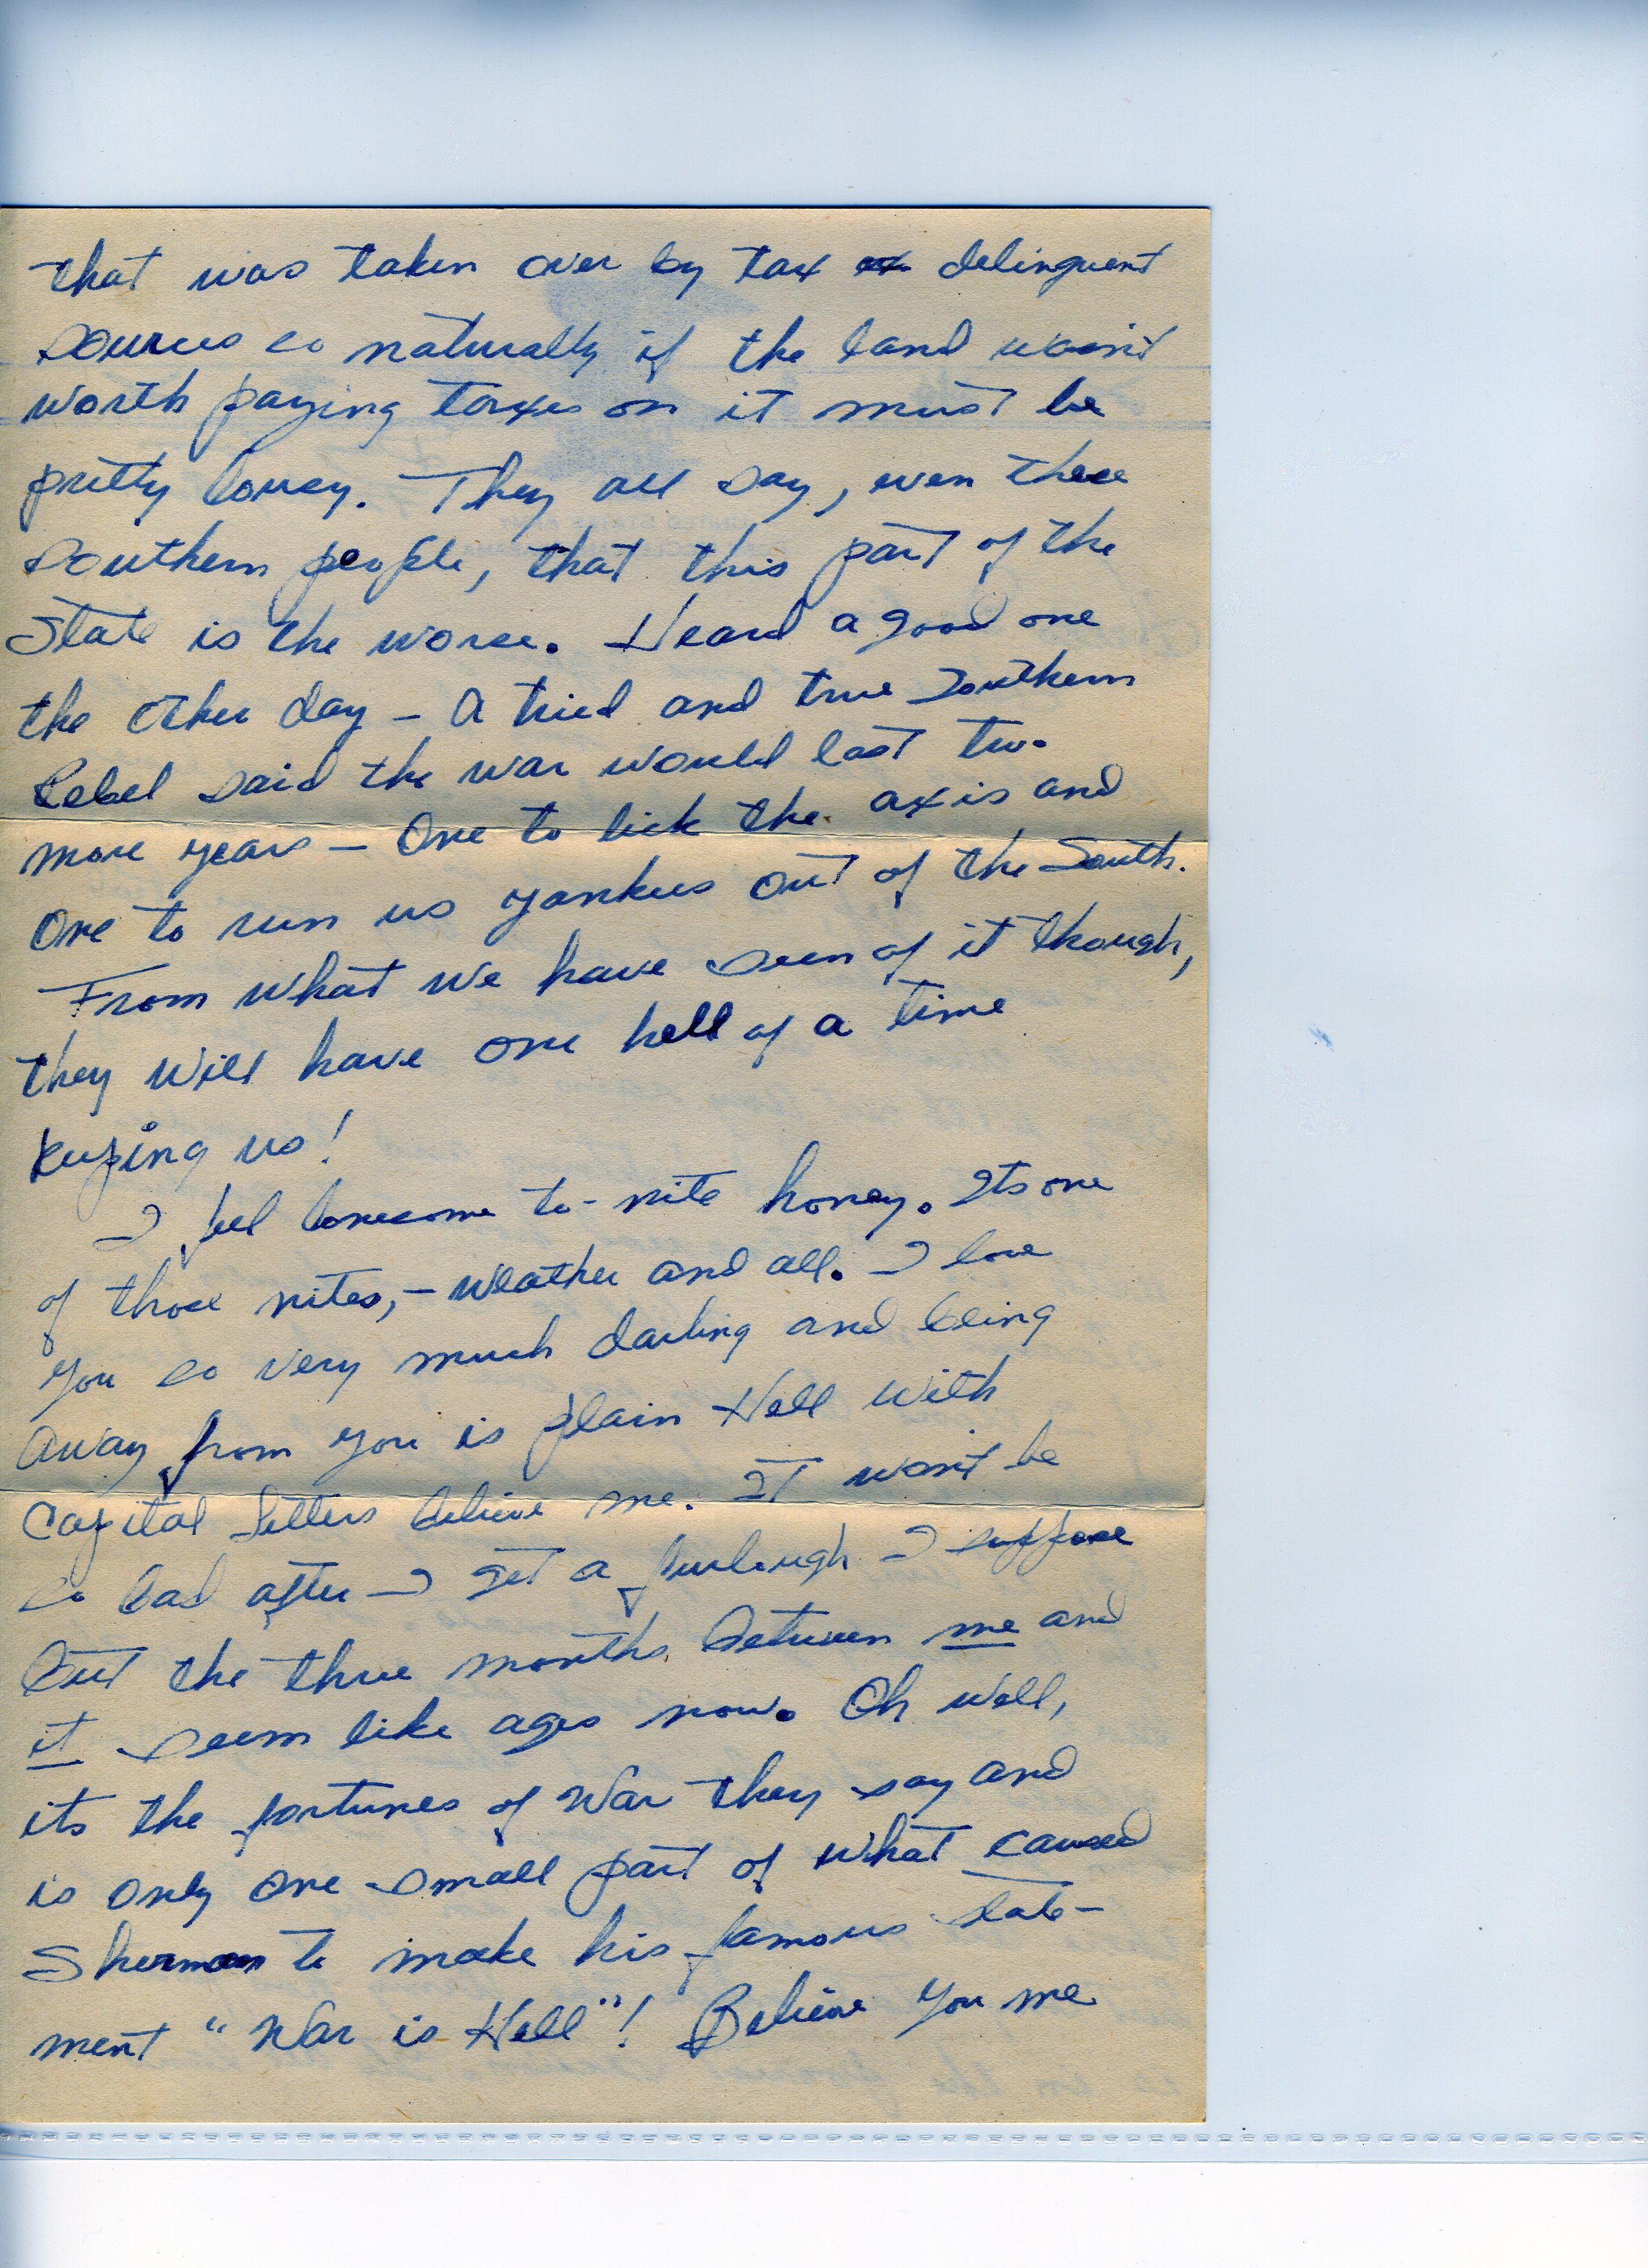 that was taken over by tax delinquent
sources so naturally if the land wasn't
worth paying taxes on it must be
pretty lousy. They all say, even these
Southern people, that this part of the
State is the worse. Heard a good one
the other day – A tried and true Southern
Rebel said the war would last two
more years – One to lick the axis and
One to run us yankees out of the South.
From what we have seen of it though,
they will have one hell of a time
keeping us!
I feel lonesome to-nite honey. Its one
of those nites,– weather and all. I love
you so very much darling and being
away from you is plain Hell with
Capital Letters believe me. It won't be
so bad after I get a furlough I suppose
but the three months between me and
it seem like ages now. Oh well,
its the fortunes of War they say and
is only one small part of what caused
Sherman to make his famous state-
ment "War is Hell"! Believe you me